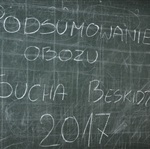 PODSUMOWANIE
OBOZU
SUCHA BESKIDZ
2017